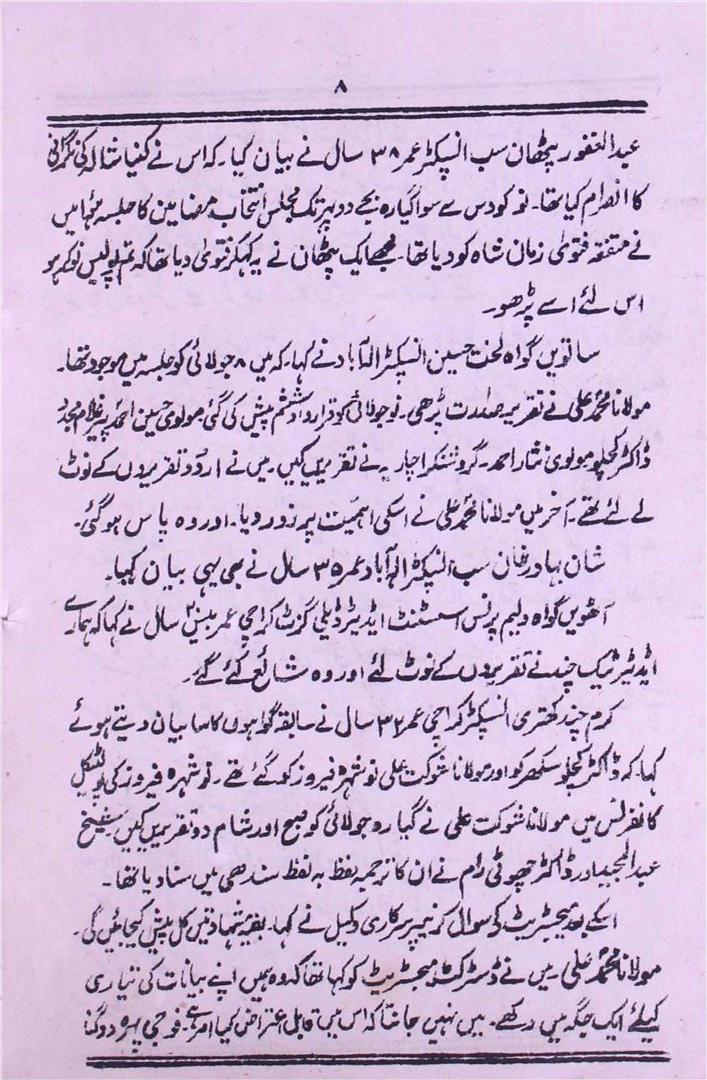 ۸
عبدالغفور پٹھان سب انسپکٹر عمر ۳۸ سال نے بیان کیا۔ کہ اس نے کنیا شالہ کی نگرانی
کا انصرام کیا تھا۔ نو کو دس سے سوا گیارہ بجے دوپہر تک مجلس انتخاب مضامین کا جلسہ ہوا میں
نے متفقہ فتویٰ زمان شاہ کو دیا تھا۔ مجھے ایک پٹھان نے یہ کہکر فتویٰ دیا تھا کہ تم پولیس نوکر ہو
اس لئے اسے پڑھو۔
ساتویں گواہ لخت حسین انسپکٹر الہ آباد نے کہا۔ کہ میں ۸ جولائی کو جلسہ میں موجود تھا۔
مولانا محمد علی نے تقریر صدارت پڑھی۔ نو جولائی کو قرارداد ششم پیش کی گئی، مولوی حسین احمد پیر غلام مجدد
ڈاکٹر کچلو مولوی نثار احمد۔ گرو شنکر اچاریہ نے تقریریں کیں۔ میں نے اردو تقریروں کے نوٹ
لے لئے تھے۔ آخر میں مولانا محمد علی نے اسکی اہمیت پر زور دیا۔ اور وہ پاس ہوگئی۔
شان بہادر خان سب انسپکٹر الہ آباد عمر ۳۵ سال نے بھی یہی بیان کیا۔
آٹھویں گواہ ولیم پرنس اسسٹنٹ ایڈیٹر ڈیلی گزٹ کراچی عمر سال نے کہا کہ ہمارے
ایڈیٹر ٹیک چند نے تقریروں کے نوٹ لئے اور وہ شائع کئے گئے۔
کرم چند کھتری انسپکٹر کراچی عمر ۳۲ سال نے سابقہ گواہوں کا سا بیان دیتے ہوئے
کہا۔ کہ ڈاکٹر کچلو سکھر کو اور مولانا شوکت علی نوشہرہ فیروز کو گئے تھے۔ نوشہرہ فیروز کی پولٹیکل
کانفرنس میں مولانا شوکت علی نے گیارہ جولائی کو صبح اور شام دو تقریریں کیں۔ شیخ
عبدالمجید اور ڈاکٹر چھوٹی رام نے ان کا ترجمہ لفظ بہ لفظ سندھی میں سنا دیا تھا۔
اسکے بعد مجسٹریٹ کے سوال کرنے پر سرکاری وکیل نے کہا۔ بقیہ شہادتیں کل پیش کیجائیں گی۔
مولانا محمد علی۔ میں نے ڈسٹرکٹ مجسٹریٹ کو کہا تھا کہ وہ ہمیں اپنے بیانات کی تیاری
کیلئے ایک جگہ میں رکھے۔ میں نہیں جانتا کہ اس میں قابل اعتراض کیا امر ہے۔ فوجی پہرہ دوگنا